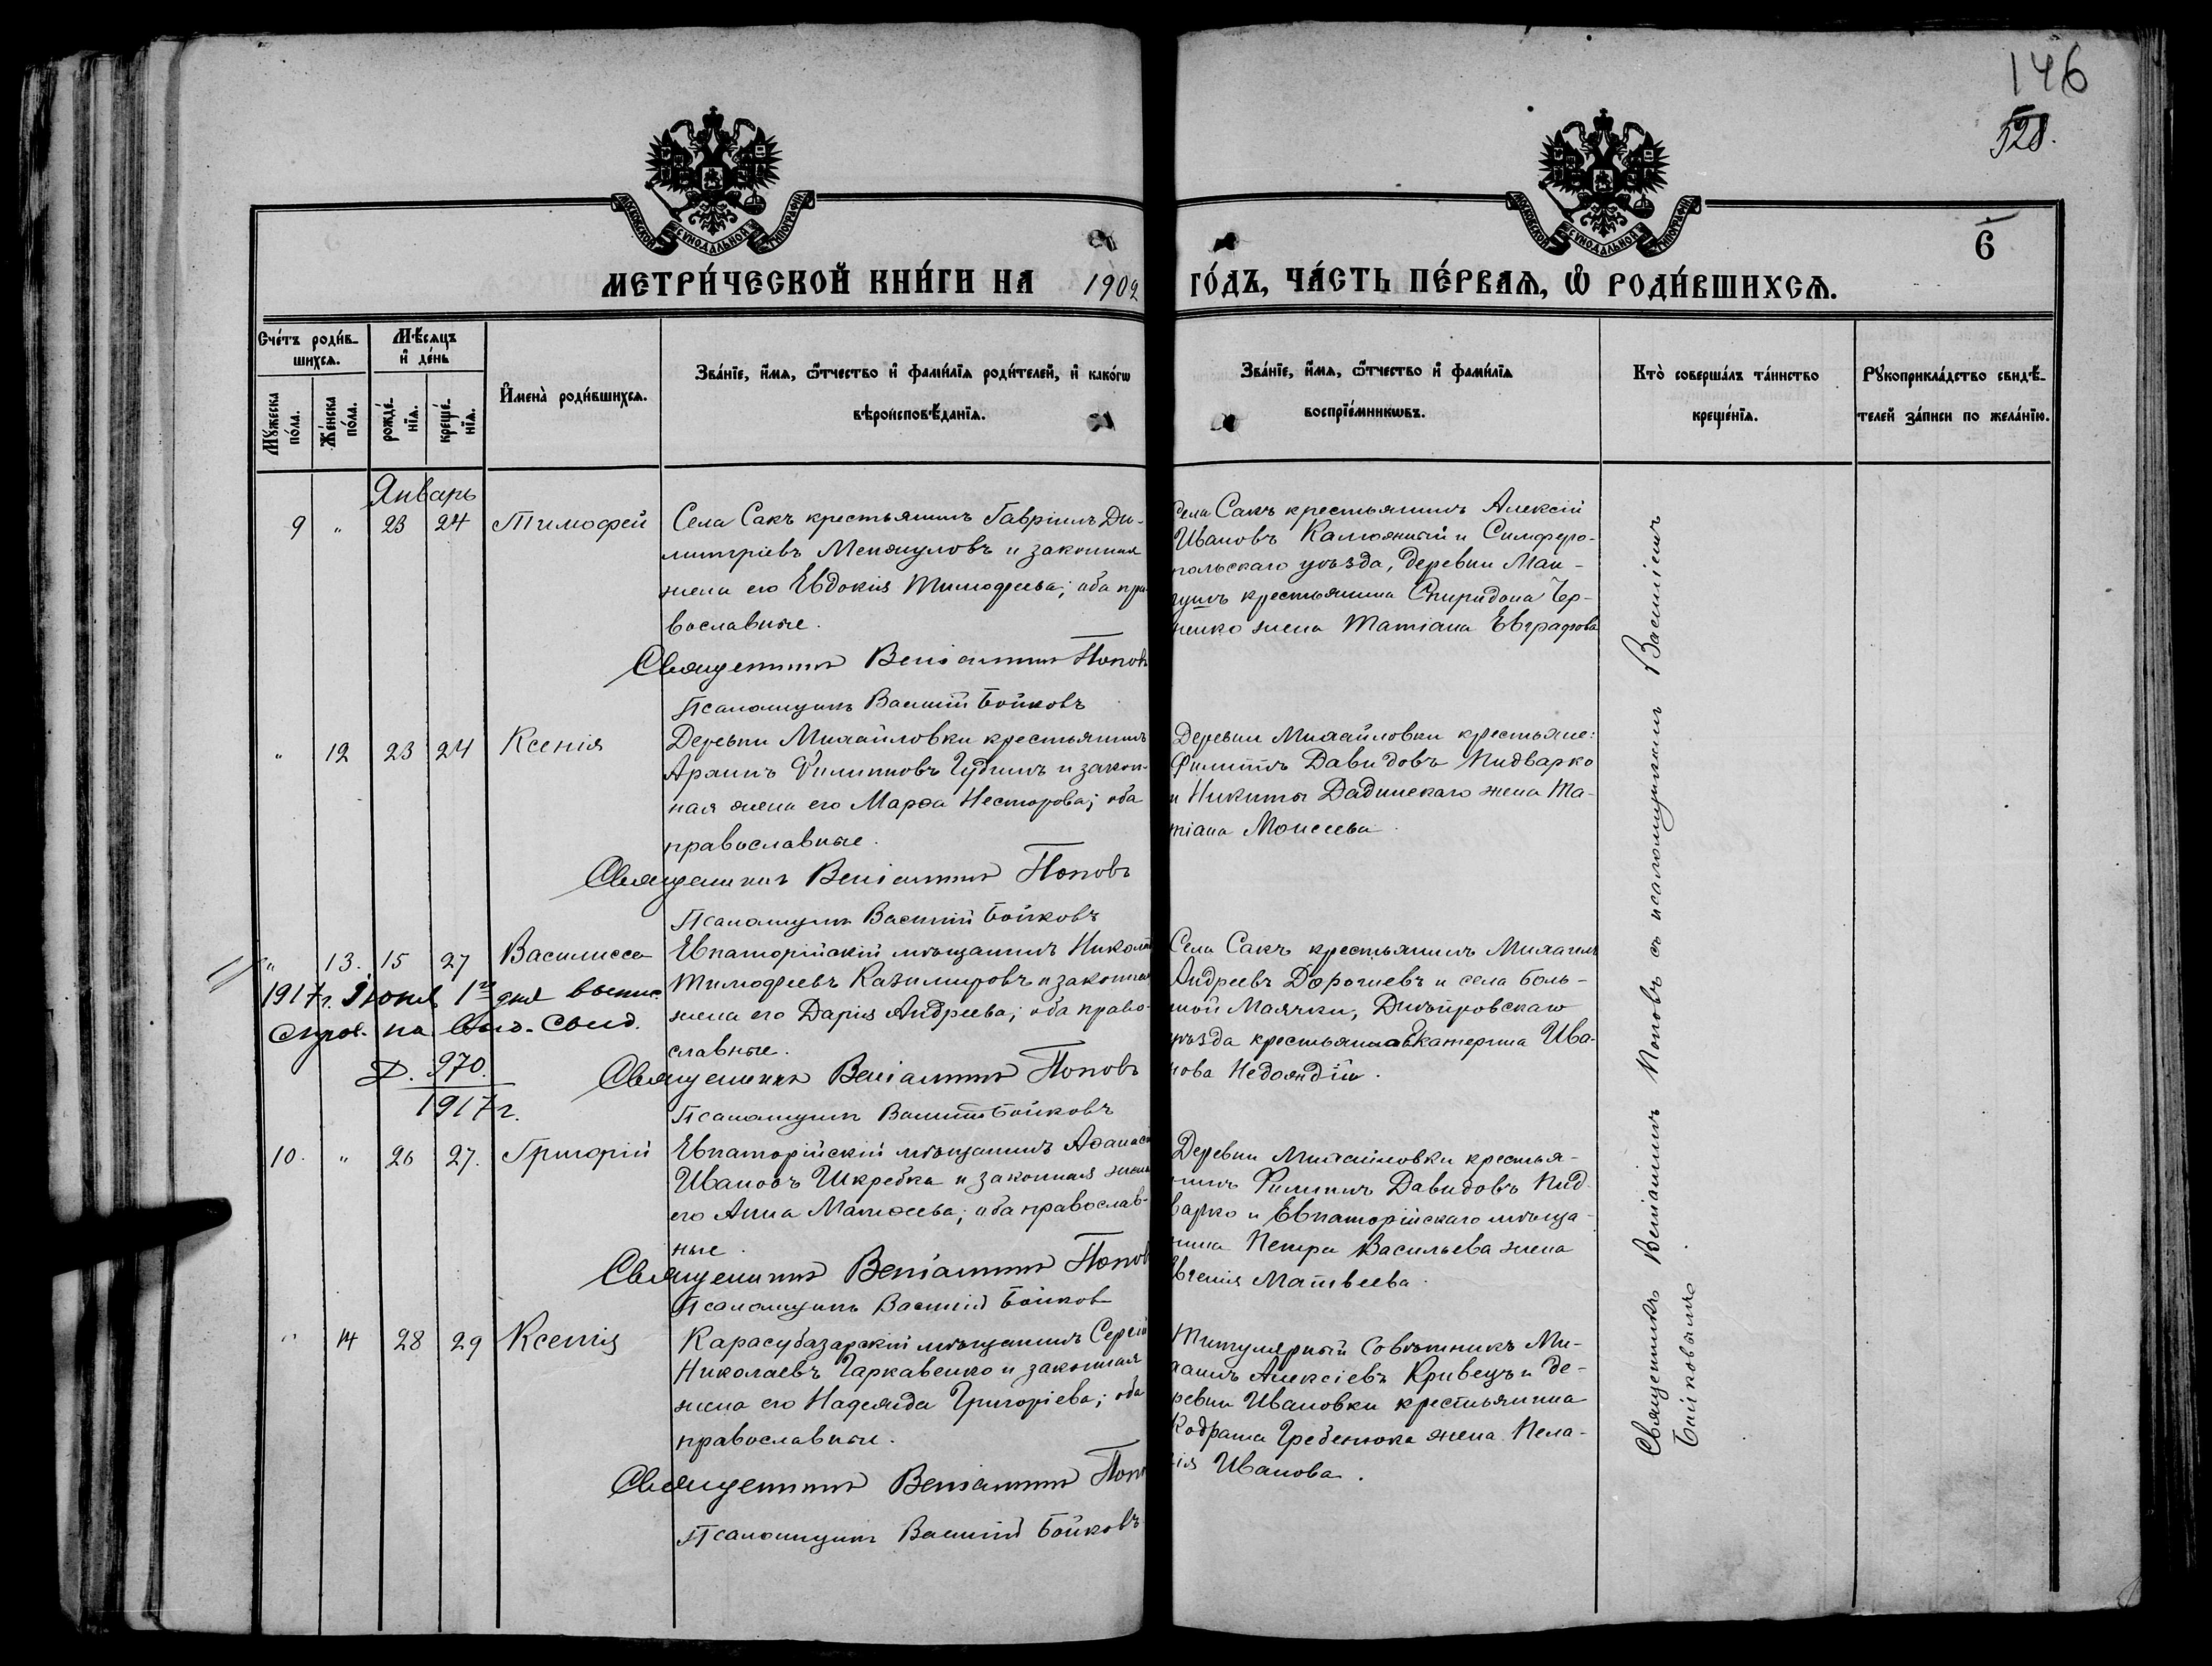 146
528.
МОСКОВСКОЙ СѴНОДАЛЬНОЙ ТИПОГРАФІИ
МОСКОВСКОЙ СѴНОДАЛЬНОЙ ТИПОГРАФІИ
6
МЕТРИ́ЧЕСКОЙ КНИ́ГИ НА 1902 ГО́ДЪ, ЧА́СТЬ ПЕ́РВАѦ, Ѡ҆ РОДИ́ВШИХСѦ.
Сче́тъ роди́в-
шихсѧ.
Мѣ́сяцъ
и҆ де́нь
Мꙋ́жеска
по́ла.
Же́нска
по́ла.
рожде́-
нїѧ.
креще́-
нїѧ.
И҆мена̀ роди́вшихсѧ.
Зва́нїе, и҆́мѧ, ѻ҆́тчество и҆ фами́лїѧ роди́телей, и҆ како́гѡ
вѣроисповѣ́данїѧ.
Зва́нїе, и҆́мѧ, ѻ҆́тчество и҆ фами́лїѧ
воспрїе́мникѡвъ.
Кто̀ соверша́лъ та́инство
креще́нїѧ.
Рꙋкоприкла́дство свидѣ́-
телей за́писи по жела́нїю.
Январь
9 " 23 24 Тимофей
Села Сакъ крестьянинъ Гавріилъ Ди-
митріевъ и законная
жена его Евдокія Тимофеева; оба пра
вославные.
Священникъ Веніаминъ Поповъ
Псаломщикъ Василій Бойковъ
Села Сакъ крестьянинъ Алексій
Ивановъ и Симферо-
польскаго уѣзда, деревни Ман-
гушъ крестьянина Спиридона Чер-
ненко жена Татіана Евграфова
" 12 23 24 Ксенія
Деревни Михайловки крестьянинъ
Филипповъ и закон-
ная жена его Марѳа Несторова; оба
православные.
Священникъ Веніаминъ Поповъ
Псаломщикъ Василій Бойковъ
Деревни Михайловки крестьяне:
Филиппъ Давидовъ Пидварко
и Никиты Дадинскаго жена Та-
тіана Моисеева.
" 13. 15 27 Василисса
1917г. Іюня 1го дня выпис.
на
Д. 970.
1917г.
Евпаторійскій мѣщанинъ Николай
Тимофеевъ Казимировъ и законная
жена его Дарія Андреева; оба право-
славные.
Священникъ Веніаминъ Поповъ
Псаломщикъ Василій Бойковъ
Села Сакъ крестьянинъ Михаилъ
Андреевъ Дорошевъ и села Боль-
шой Маячки, Днѣпровскаго
уѣзда крестьянка Екатерина Ива-
нова
10. " 26 27. Григорій
Евпаторійскій мѣщанинъ Аѳанасій
Ивановъ Шкребка и законная жена
его Анна Матѳеева; оба православ-
ные.
Священникъ Веніаминъ Поповъ
Псаломщикъ Василій Бойковъ
Деревни Михайловки крестья-
нинъ Филиппъ Давидовъ Пид-
варко и Евпаторійскаго мѣща-
нина Петра Васильева жена
Евгенія Матвеева.
" 14 28 29 Ксенія
Карасубазарскій мѣщанинъ Сергій
Николаевъ Гаркавенко и законная
жена его Надежда Григоріева; оба
православные.
Священникъ Веніаминъ Поповъ
Псаломщикъ Василій Бойковъ
Титулярный Совѣтникъ Ми-
хаилъ Алексіевъ Кривецъ и де-
ревни Ивановки крестьянина
Кодрата Гребенюка жена Пела-
гія Иванова.
Священникъ Веніаминъ Поповъ съ псаломщикомъ Василіемъ
Бойковымъ.